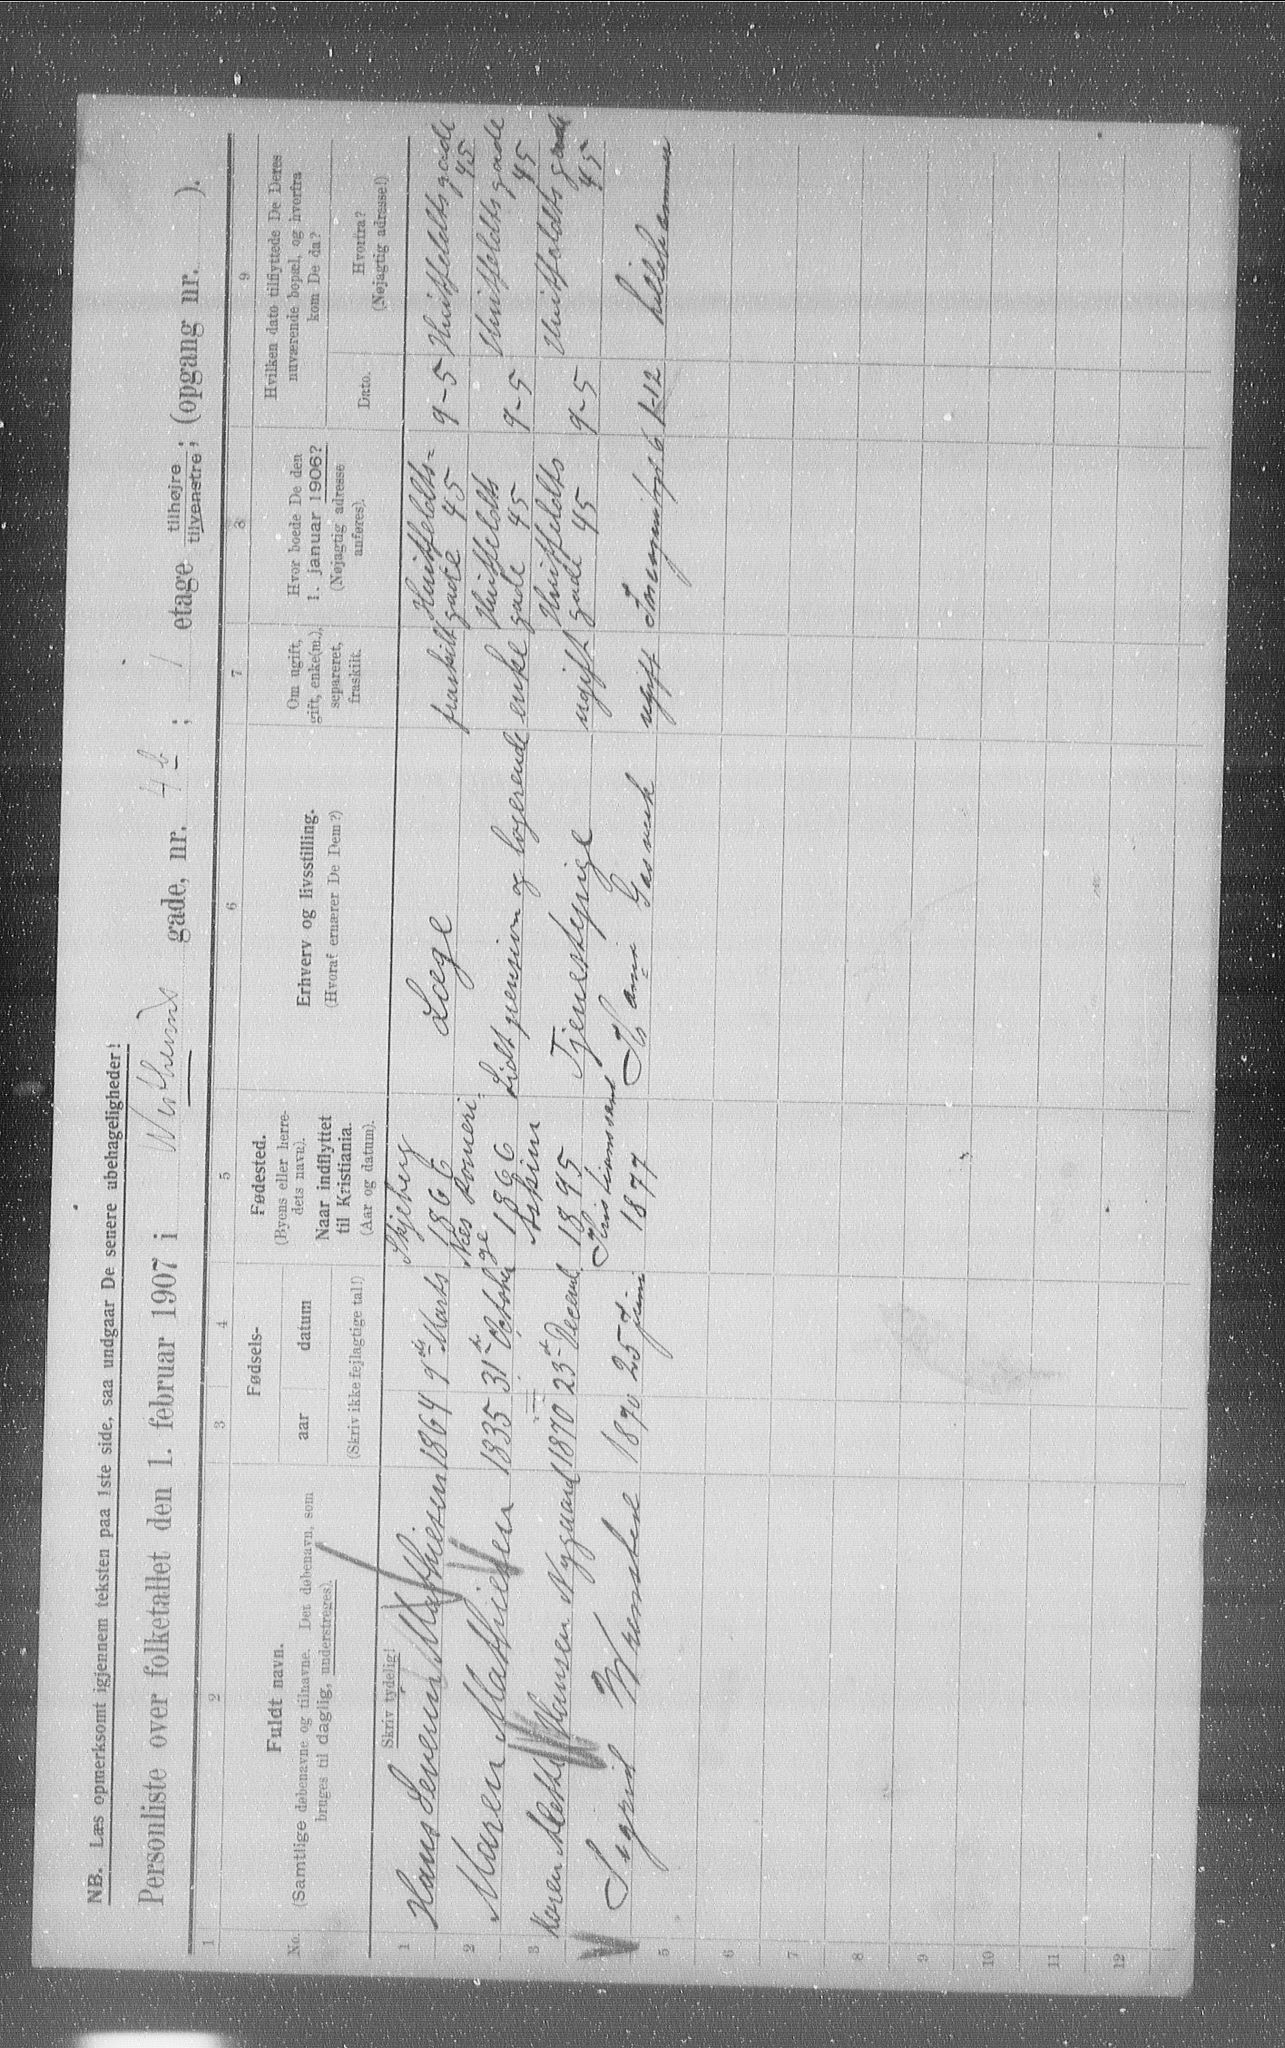 NB. Læs opmerksomt igjennem teksten paa 1ste side, saa undgaar De senere ubehageligheder!
Personliste over folketallet den 1. februar 1907 i gade, nr. 4 b ; 1 etage tilhøjre ; tilvenstre ; (opgang nr. ).
1 2 3 4 5 6 7 8 9
No.
Fuldt navn.
(Samtlige døbenavne og tilnavne. Det døbenavn, som
bruges til daglig, understreges).
Fødsels-
aar datum
Fødested.
(Byens eller herre-
dets navn).
Naar indflyttet
til Kristiania.
(Aar og datum).
Erhverv og livsstilling.
(Hvoraf ernærer De Dem?)
Om ugift,
gift, enke(m.),
separeret,
fraskilt.
Hvor boede De den
1. januar 1906?
(Nøjagtig adresse
anføres).
Hvilken dato tilflyttede De Deres
nuværende bopæl, og hvorfra
kom De da?
Dato.
Hvorfra?
(Nøjagtig adresse!)
Skriv tydelig!
(Skriv ikke fejlagtige tal!)
1 Hans Severin Mathiesen 1864 9de Marts Skjeberg 1866 Læge fraskilt Huitfeldts-
gade 45 9-5 Huitfeldtsgade
45
2 Maren Mathiesen 1835 31te Octobr Næs Romeri-
ge 1866 Lidt pension og logerende enke Huitfeldts
gade 45 9-5 Huitfeldtsgade
45
3 Karen Mathe Hansen Nygaard 1870 23de Decemb. Askim
1895 Tjenestepige ugift Huitfeldts
gade 45 9-5 Huitfeldtsgade
45
Sigrid 1870 25 Juni Kristianssand
1877 Gasverk ugift 6 1-12 Lillehammer
5
6
7
8
9
10
11
12